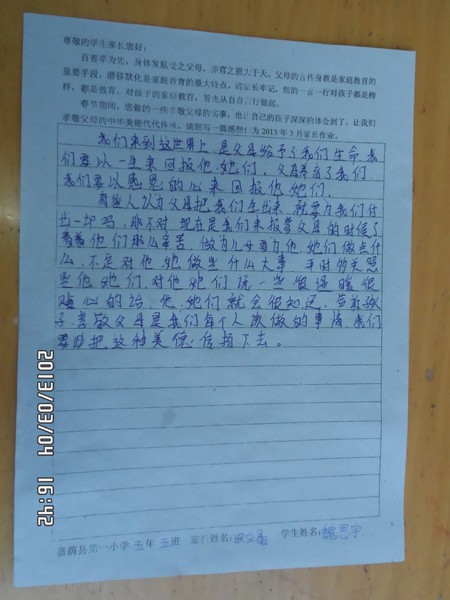 尊敬的学生家长您好:
百善孝为先,身体发肤受之父母,养育之恩大于天,父母的言传身教是家庭教育的
重要手段,潜移默化是家庭教育的最大特点,请家长牢记,您的一言一行对孩子都是榜
样,都是教育,对孩子的家庭教育,首先从自身言行做起。
春节期间,您做的一些孝敬父母的实事,也让自己的孩子深深的体会到了,让我们
孝敬父母的中华美德代代传承。请您写一篇感想!为2013年3月家长作业。
我们来到这世界上,是父母给予了我们生命,我
们要以一生来回报他,她们,父母养育了我们
我们要以感恩的心来回报他她们.
有些人认为父母把我们生出来,就要为我们付
出一切吗,那不对,现在是我们来报答父母的时候了
看着他们那么辛苦,做为儿女要为他,她们做点什
么,不定对他她做些什么大事,平时多关照
些他她们,对他她们说一些很温暖很
贴心的话,他,她们就会很知足,当着孩
子,孝敬父母是我们每个人该做的事情,我们
要把这种美德,传扬下去。
嘉荫县第一小学 五年 五班 家长姓名: 学生姓名:
2013/03/04 16:42